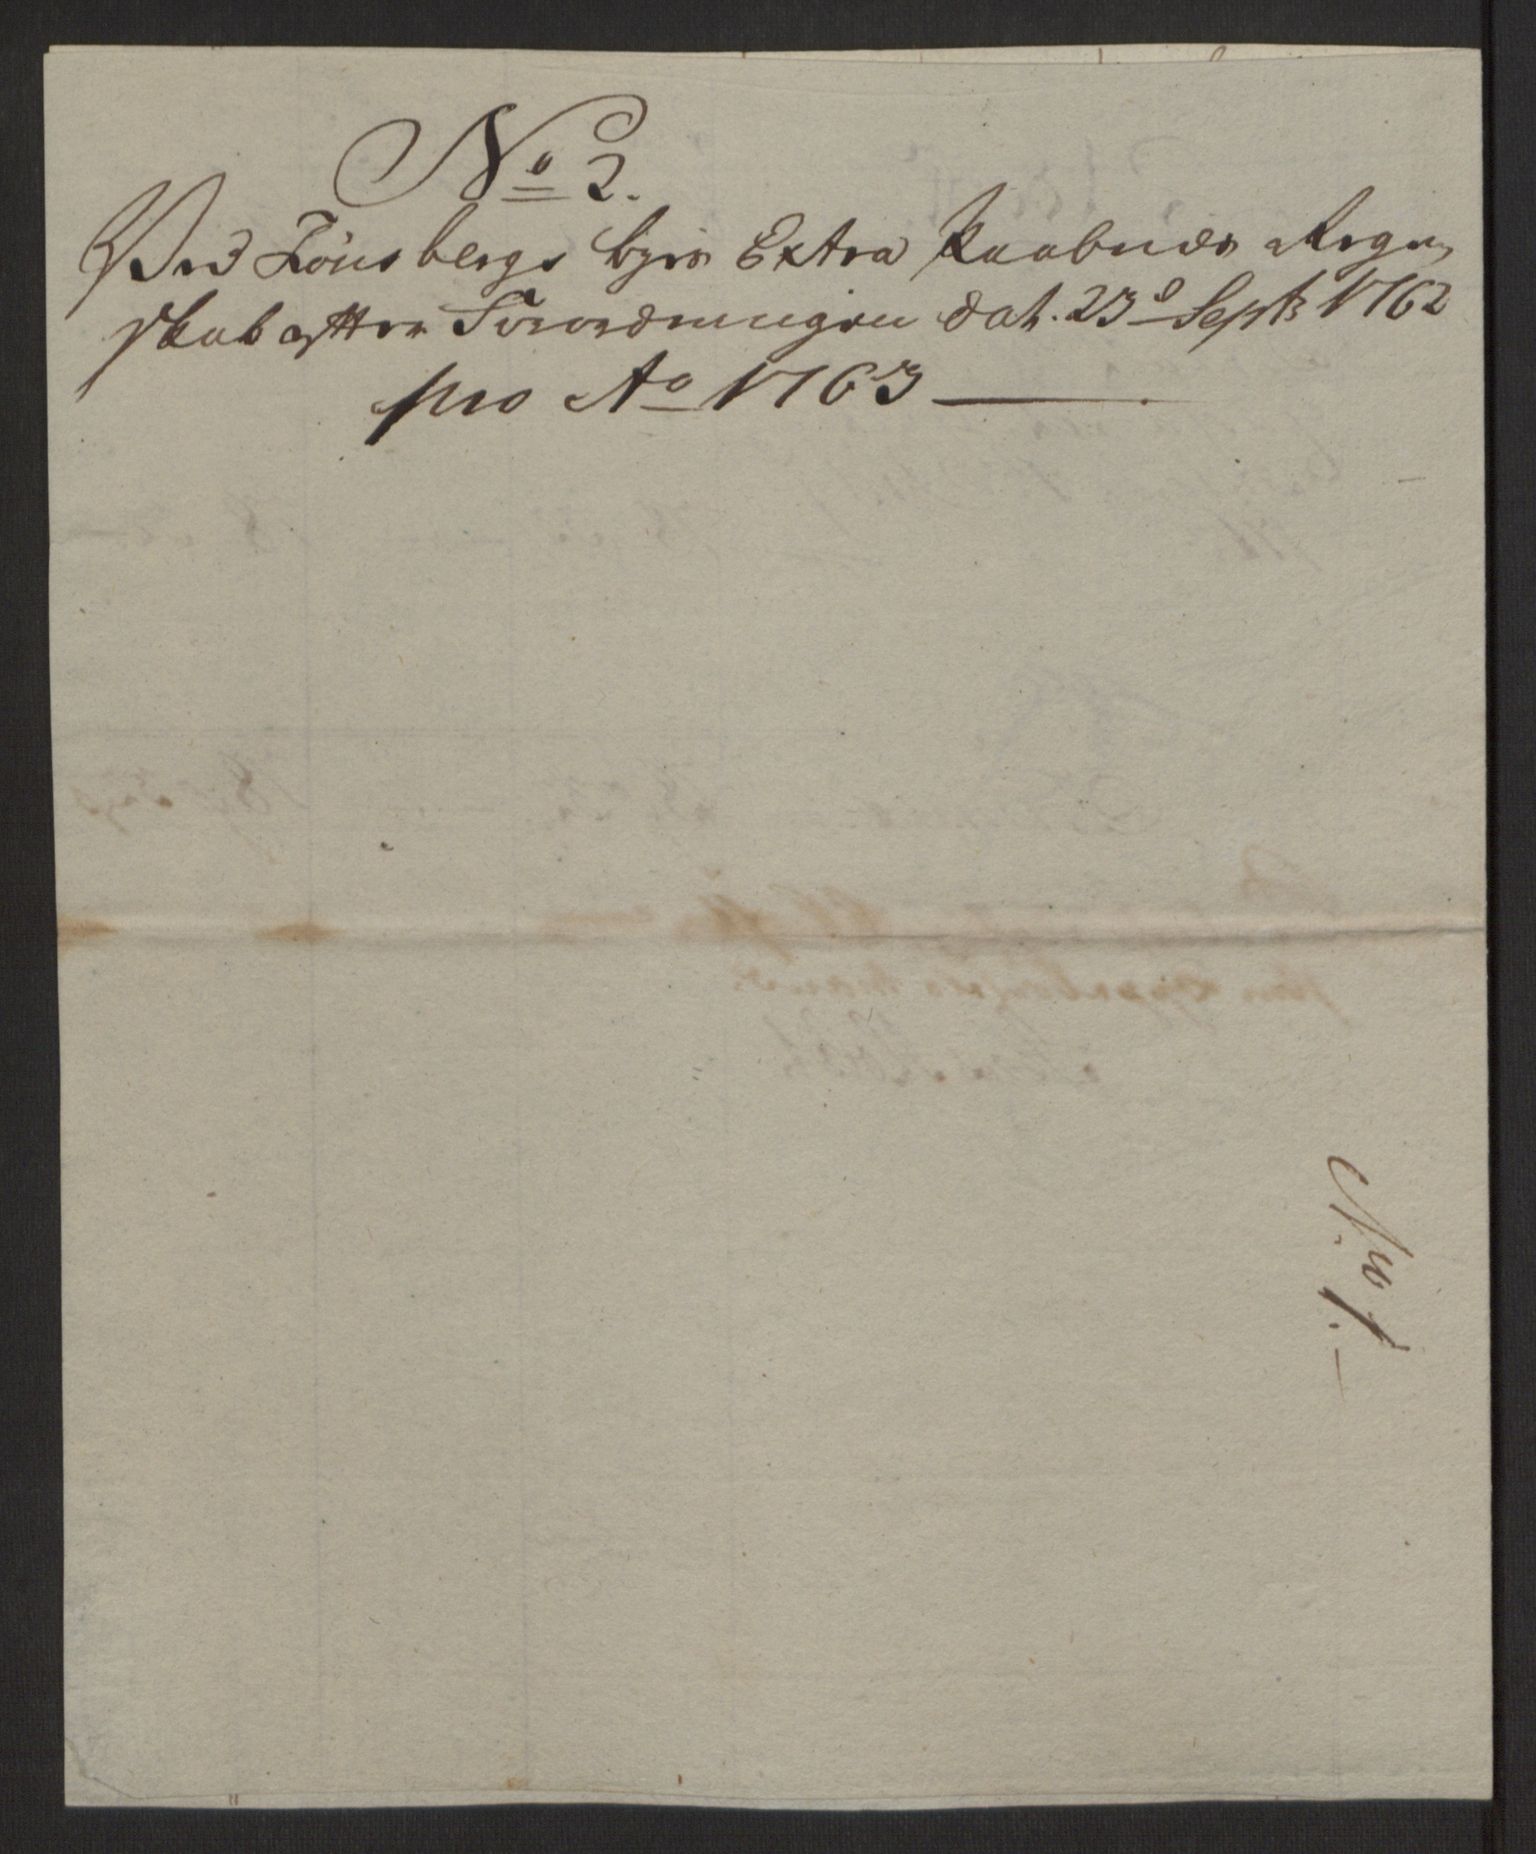 No 2.
Ved Tönsbergs byes Extra Skatts Regn
skab efter Forordningen dat. 23d Septr 1762
pro Ao 1763
No 1.